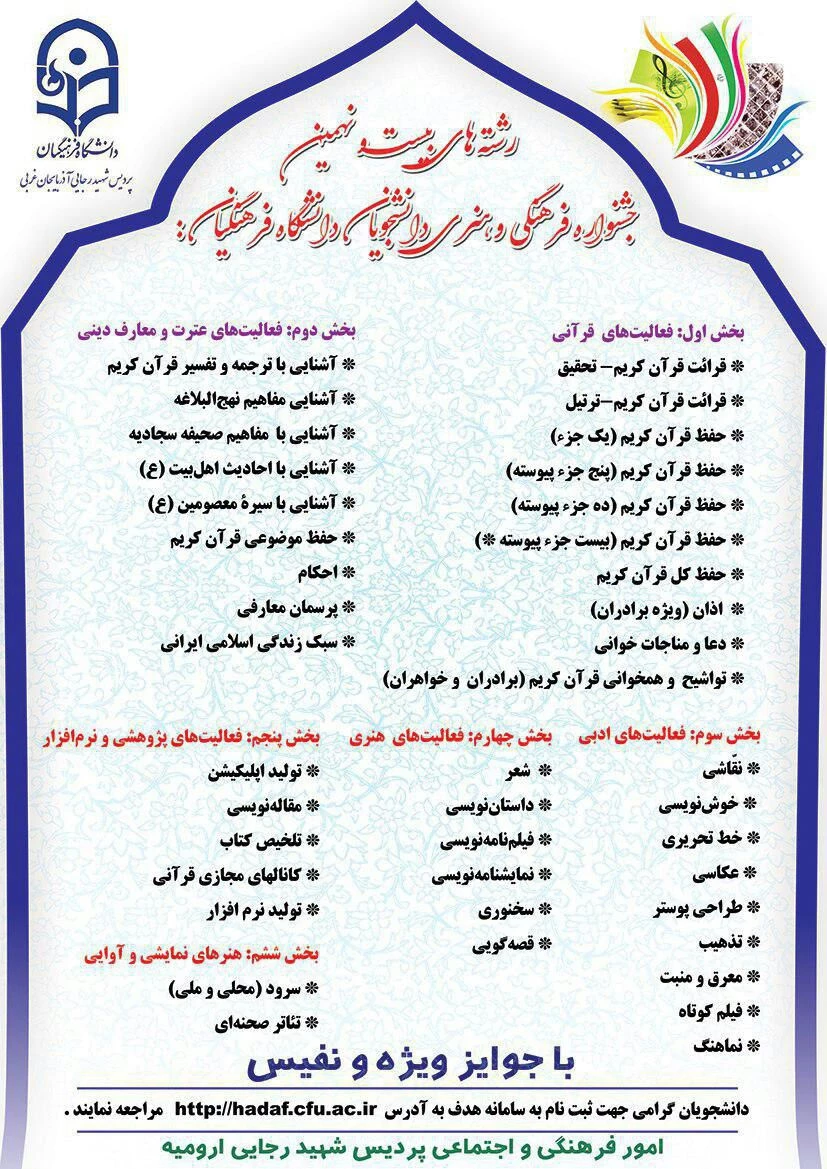 دانشگاه فرهنگیان
پردیس شهید رجایی آذربایجان غربی
رشته های بیست و نهمین
جشنواره فرهنگی و هنری دانشجویان دانشگاه فرهنگیان :
بخش اول: فعالیت‌های قرآنی
❊ قرائت قرآن کریم- تحقیق
❊ قرائت قرآن کریم-ترتیل
❊ حفظ قرآن کریم (یک جزء)
❊ حفظ قرآن کریم (پنج جزء پیوسته)
❊ حفظ قرآن کریم (ده جزء پیوسته)
❊ حفظ قرآن کریم (بیست جزء پیوسته ❊)
❊ حفظ کل قرآن کریم
❊ اذان (ویژه برادران)
❊ دعا و مناجات خوانی
❊ تواشیح و همخوانی قرآن کریم (برادران و خواهران)
بخش دوم: فعالیت‌های عترت و معارف دینی
❊ آشنایی با ترجمه و تفسیر قرآن کریم
❊ آشنایی مفاهیم نهج‌البلاغه
❊ آشنایی با مفاهیم صحیفه سجادیه
❊ آشنایی با احادیث اهل‌بیت (ع)
❊ آشنایی با سیرهٔ معصومین (ع)
❊ حفظ موضوعی قرآن کریم
❊ احکام
❊ پرسمان معارفی
❊ سبک زندگی اسلامی ایرانی
بخش سوم: فعالیت‌های ادبی
❊ نقّاشی
❊ خوش‌نویسی
❊ خط تحریری
❊ عکاسی
❊ طراحی پوستر
❊ تذهیب
❊ معرق و منبت
❊ فیلم کوتاه
❊ نماهنگ
بخش چهارم: فعالیت‌های هنری
❊ شعر
❊ داستان‌نویسی
❊ فیلم‌نامه‌نویسی
❊ نمایشنامه‌نویسی
❊ سخنوری
❊ قصه‌گویی
بخش پنجم: فعالیت‌های پژوهشی و نرم‌افزار
❊ تولید اپلیکیشن
❊ مقاله‌نویسی
❊ تلخیص کتاب
❊ کانالهای مجازی قرآنی
❊ تولید نرم افزار
بخش ششم: هنرهای نمایشی و آوایی
❊ سرود (محلی و ملی)
❊ تئاتر صحنه‌ای
با جوایز ویژه و نفیس
دانشجویان گرامی جهت ثبت نام به سامانه هدف به آدرس http://hadaf.cfu.ac.ir مراجعه نمایند .
امور فرهنگی و اجتماعی پردیس شهید رجایی ارومیه